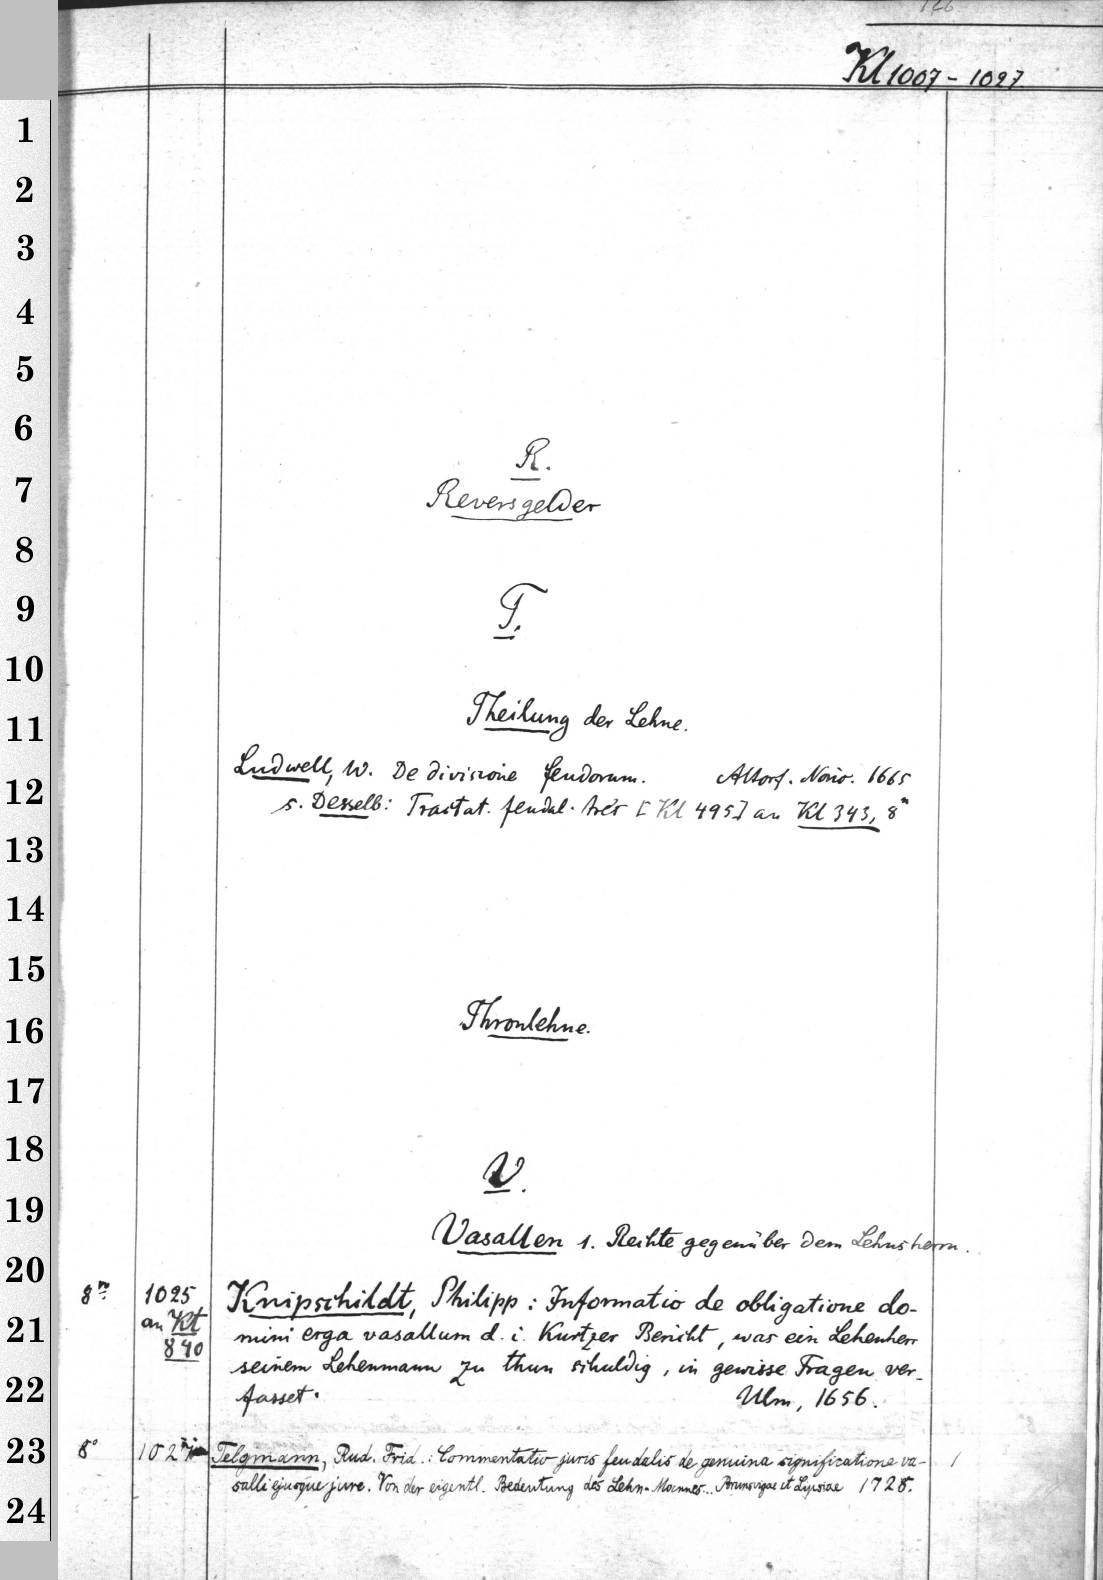 126
Kl 1007 - 1027.
R.
Reversgelder
T.
Theilung der Lehne.
Ludwell, W. De divisione feudorum. Altorf. Noric. 1665
s. Desselb: Tractat. feudal. tres [Kl 495] an Kl 343, 8°
Thronlehne.
V.
Vasallen 1. Rechte gegenüber dem Lehnsherrn.
8° 1025 Knipschildt, Philipp: Informatio de obligatione do-
an Kt mini erga vasallum d. i. Kurtzer Bericht, was ein Lehenherr
840 seinem Lehenmann zu thun schuldig, in gewisse Fragen ver-
fasset. Ulm, 1656.
8° 1027 Telgmann, Rud. Frid.: Commentatio juris feudalis de genuina significatione va- 1
salli ejusque jure. Von der eigentl. Bedeutung des Lehn-Mannes... Brunsvigae et Lipsiae 1728.
1
2
3
4
5
6
7
8
9
10
11
12
13
14
15
16
17
18
19
20
21
22
23
24